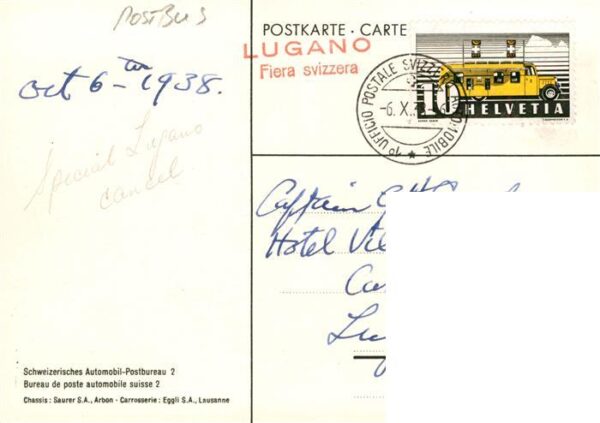 POSTBUS
POSTKARTE · CARTE
LUGANO
Fiera svizzera
Oct 6 1938.
1º UFFICIO POSTALE SVIZZERO AUTOMOBILE
-6.X.38
10
HELVETIA
Special Lugano
cancel
Captain
Hotel
Schweizerisches Automobil-Postbureau 2
Bureau de poste automobile suisse 2
Chassis: Saurer S.A., Arbon - Carrosserie: Eggli S.A., Lausanne